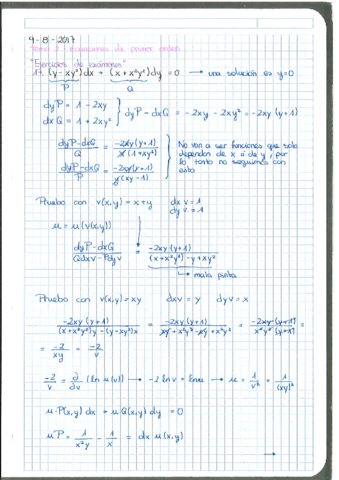 9-8-2017
Tema 2: Ecuaciones de primer orden
"Ejercicios de exámenes"
17. (y-xy²)dx + (x+x²y²)dy = 0 → una solución es y=0
P Q
dyP = 1-2xy
dxQ = 1+2xy²
dyP-dxQ = -2xy-2xy² = -2xy(y+1)
dyP-dxQ / Q = -2xy(y+1) / x(1+xy²)
dyP-dxQ / P = -2xy(y+1) / y(xy-1)
No van a ser funciones que solo dependan de x o de y, por lo tanto no seguimos con esto
Pruebo con v(x,y) = x+y dxv = 1
dyv = 1
μ = μ(v(x,y))
dyP-dxQ / Qdxv-Pdyv = -2xy(y+1) / (x+x²y²)-y+xy²
→ mala pinta
Pruebo con v(x,y) = xy dxv = y dyv = x
-2xy(y+1) / (x+x²y²)y-(y-xy²)x = -2xy(y+1) / xy+x²y³-xy+x²y² = -2xy(y+1) / x²y²(y+1) =
= -2/xy = -2/v
-2/v = ∂/∂v (ln μ(v)) → -2 ln v = ln μ → μ = 1/v² = 1/(xy)²
μ·P(x,y)dx + μQ(x,y)dy = 0
μP = 1/x²y - 1/x = dx u(x,y)
→